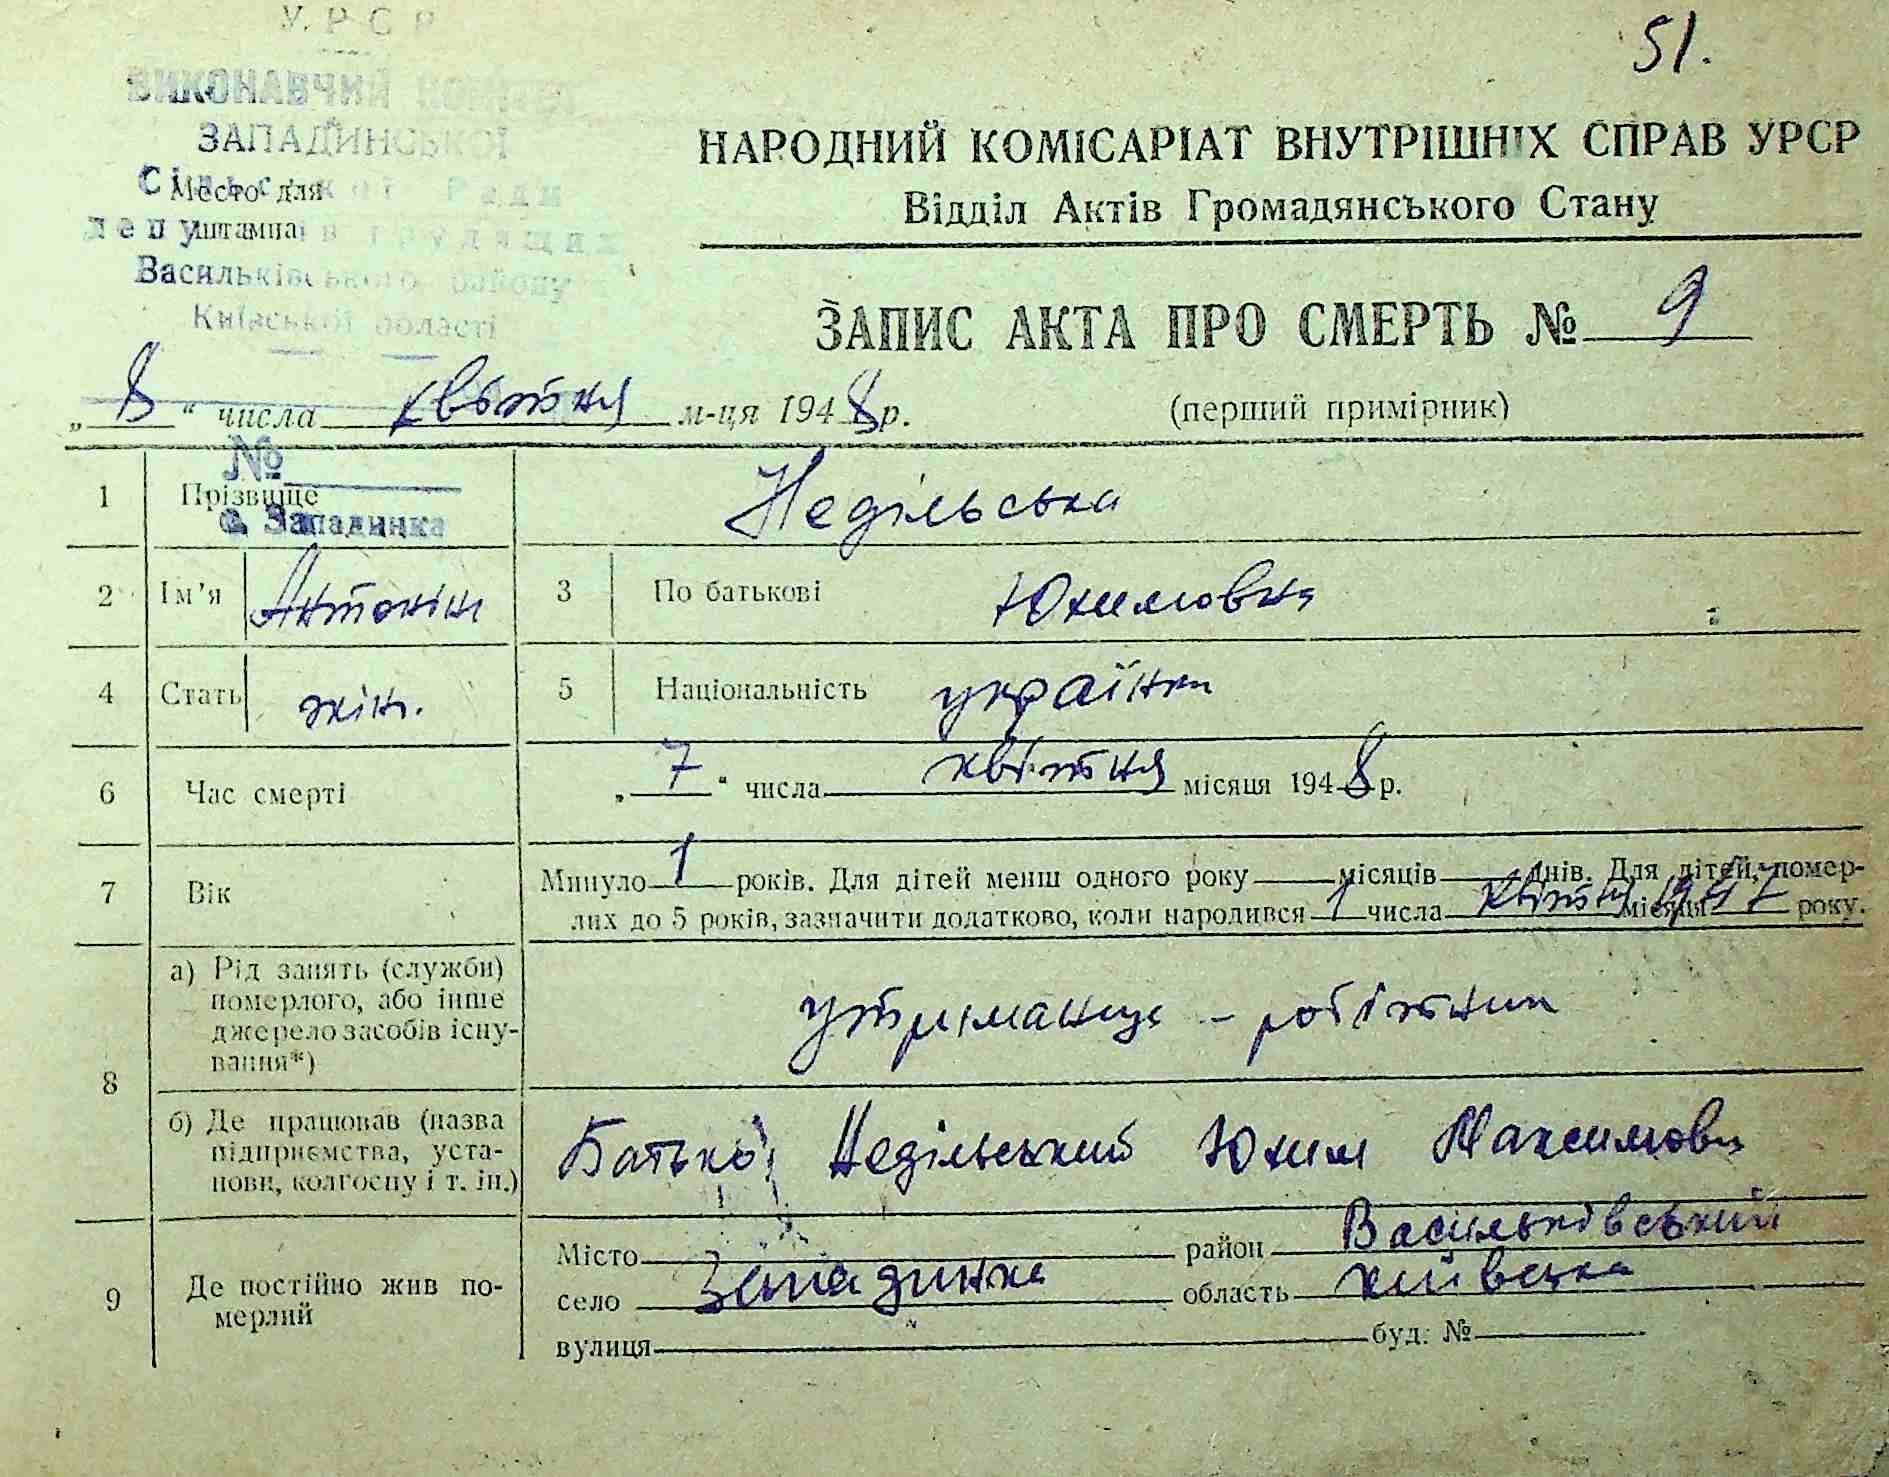 51.
УРСР
ВИКОНАВЧИЙ КОМІТЕТ
ЗАПАДИНСЬКОЇ
Сільської Ради
депутатів трудящих
Васильківського району
Київської області
Место для
штампа
НАРОДНИЙ КОМІСАРІАТ ВНУТРІШНІХ СПРАВ УРСР
Відділ Актів Громадянського Стану
ЗАПИС АКТА ПРО СМЕРТЬ № 9
„8“ числа квітня м-ця 1948 р.
(перший примірник)
№
с. Западинка
1 Прізвище Недільська
2 Ім’я Антоніна 3 По батькові Юхимовна
4 Стать жін. 5 Національність українка
6 Час смерті „7“ числа квітня місяця 1948 р.
7 Вік Минуло 1 років. Для дітей менш одного року — місяців — днів. Для дітей, помер-
лих до 5 років, зазначити додатково, коли народився 1 числа квітня місяця 1947 року.
8 а) Рід занять (служби)
померлого, або інше
джерело засобів існу-
вання*)
утриманця - робітник
б) Де працював (назва
підприємства, уста-
нови, колгоспу і т. ін.)
Батько: Недільський Юхим Максимович
9 Де постійно жив по-
мерлий
Місто район Васильківський
село Западинка область київська
вулиця буд. №